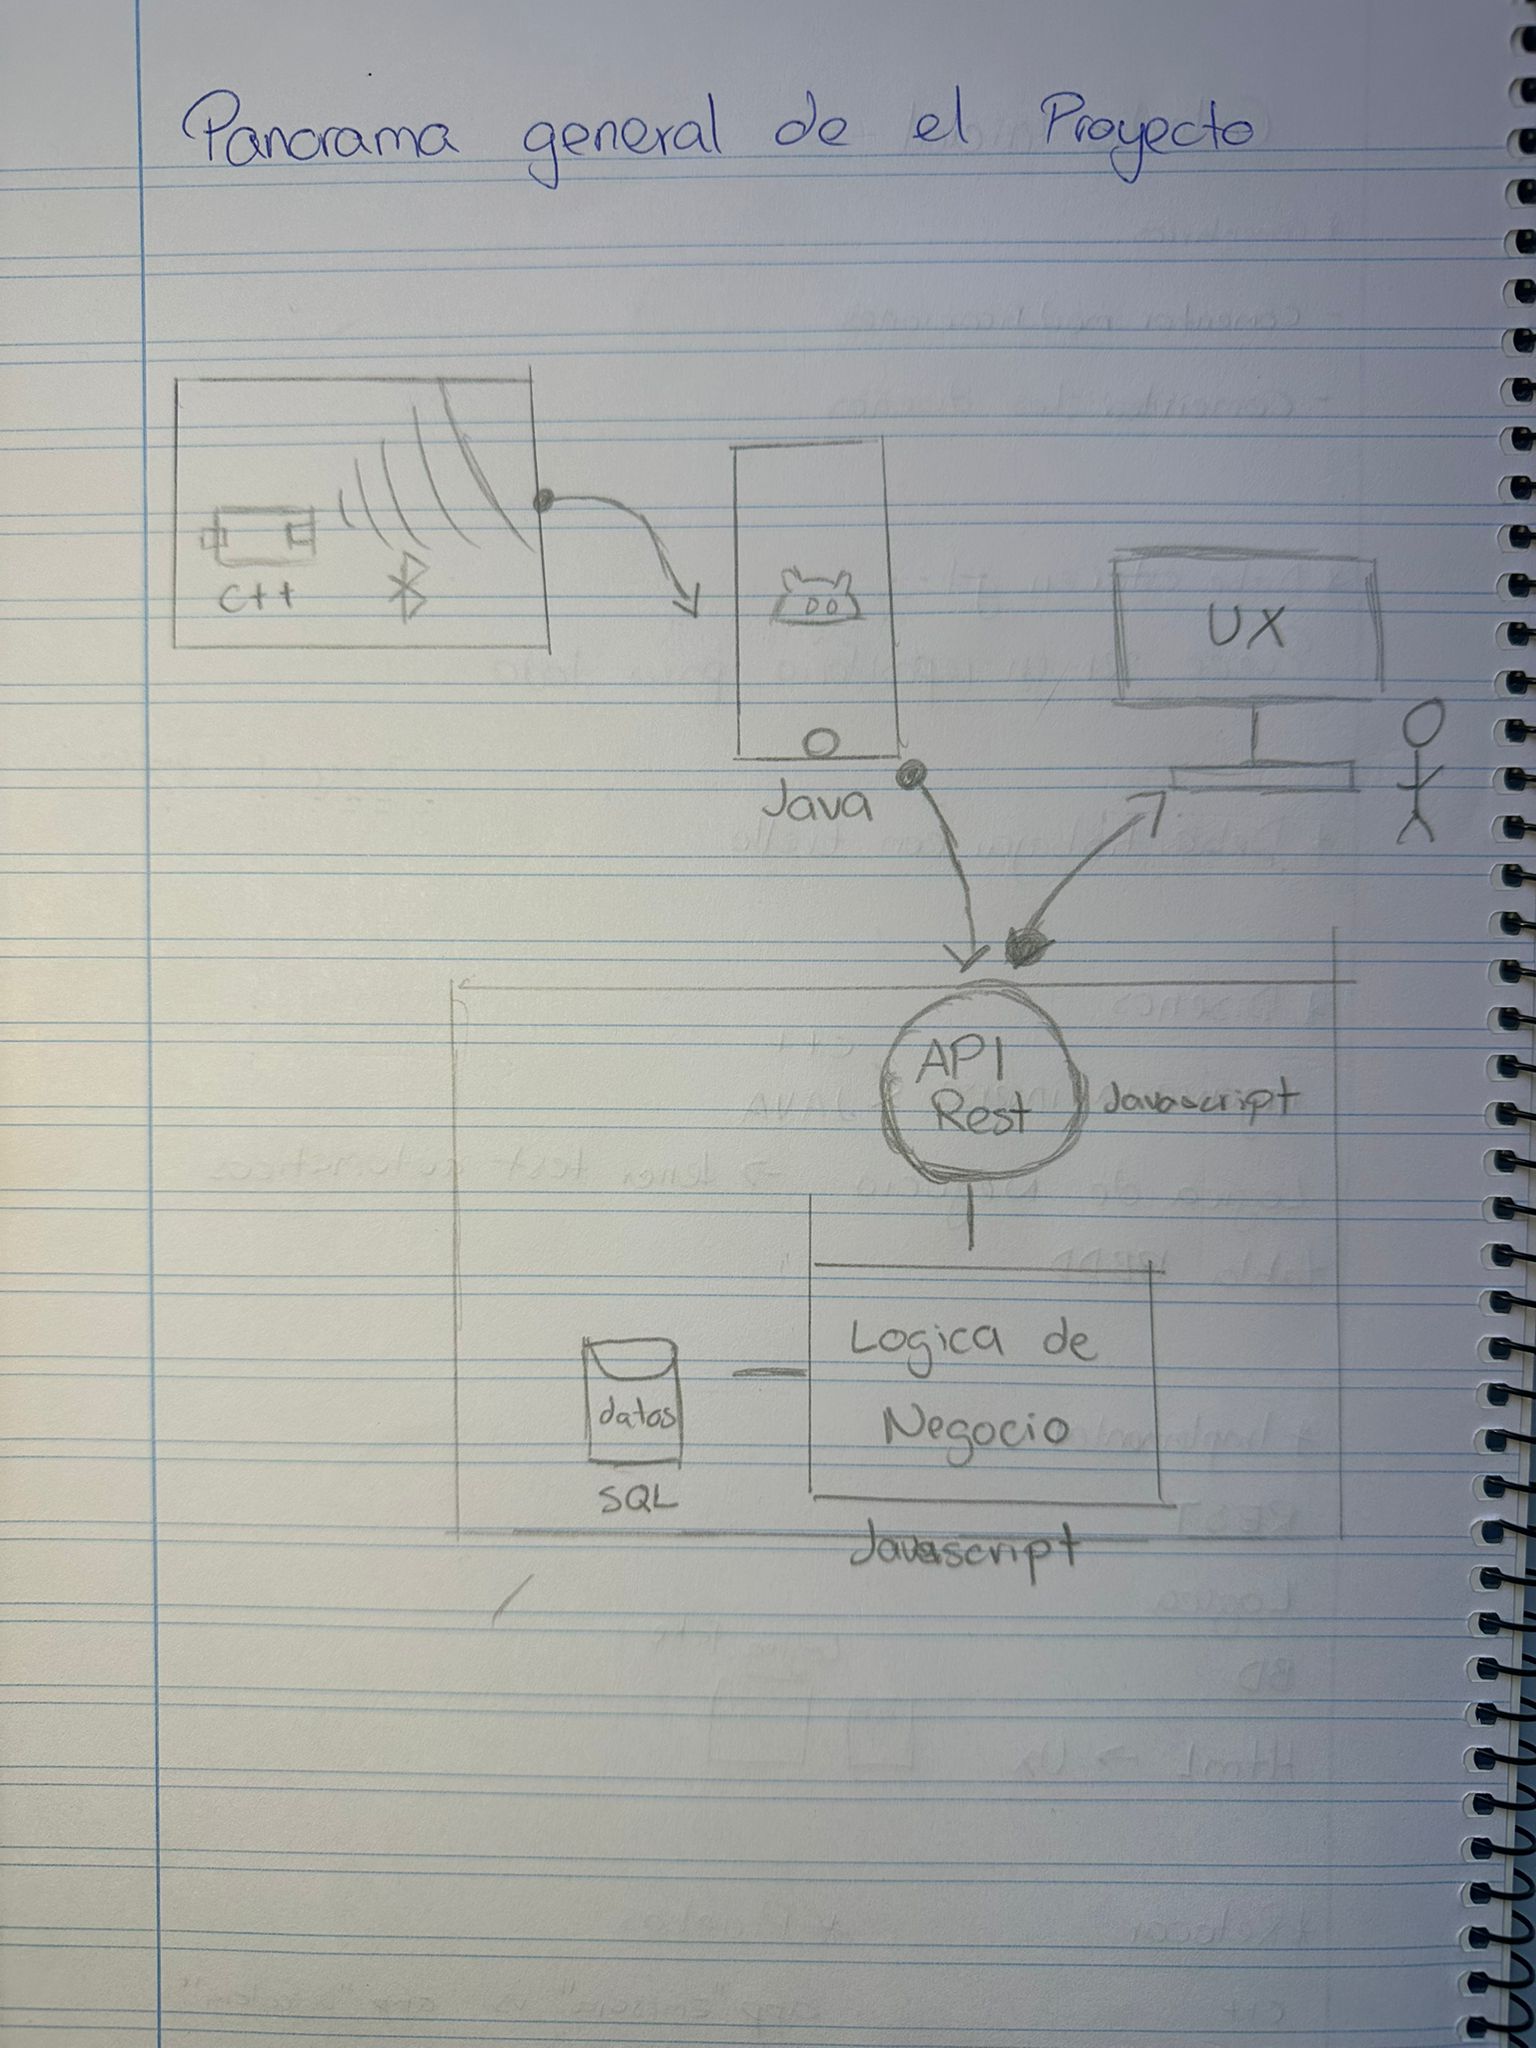 Panorama general de el Proyecto
C++
Java
UX
API
Rest
Javascript
Logica de
Negocio
datos
SQL
Javascript